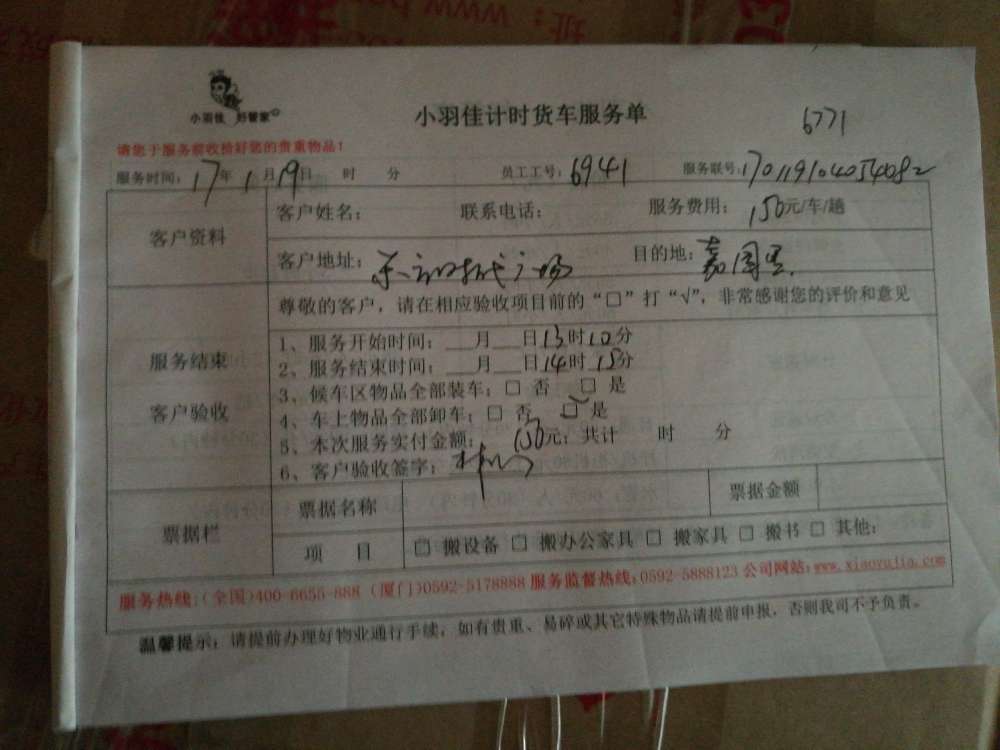 小羽佳 好管家
小羽佳计时货车服务单
6771
请您于服务前收拾好您的贵重物品！
服务时间：17年1月19日 时 分 员工工号：6941 服务联号：170119104054082
客户资料
客户姓名： 联系电话： 服务费用：150元/车/趟
客户地址： 广场 目的地：嘉园里
服务结束
客户验收
尊敬的客户，请在相应验收项目前的“□”打“√”，非常感谢您的评价和意见
1、服务开始时间：___月___日13时10分
2、服务结束时间：___月___日14时18分
3、候车区物品全部装车：□ 否 □ 是
4、车上物品全部卸车：□ 否 □ 是
5、本次服务实付金额： 150元；共计 时 分
6、客户验收签字：
票据栏
票据名称 票据金额
项 目 □ 搬设备 □ 搬办公家具 □ 搬家具 □ 搬书 □ 其他：
服务热线：(全国)400-6655-888 (厦门)0592-5178888 服务监督热线：0592-5888123 公司网站：www.xiaoyujia.com
温馨提示：请提前办理好物业通行手续，如有贵重、易碎或其它特殊物品请提前申报，否则我司不予负责。